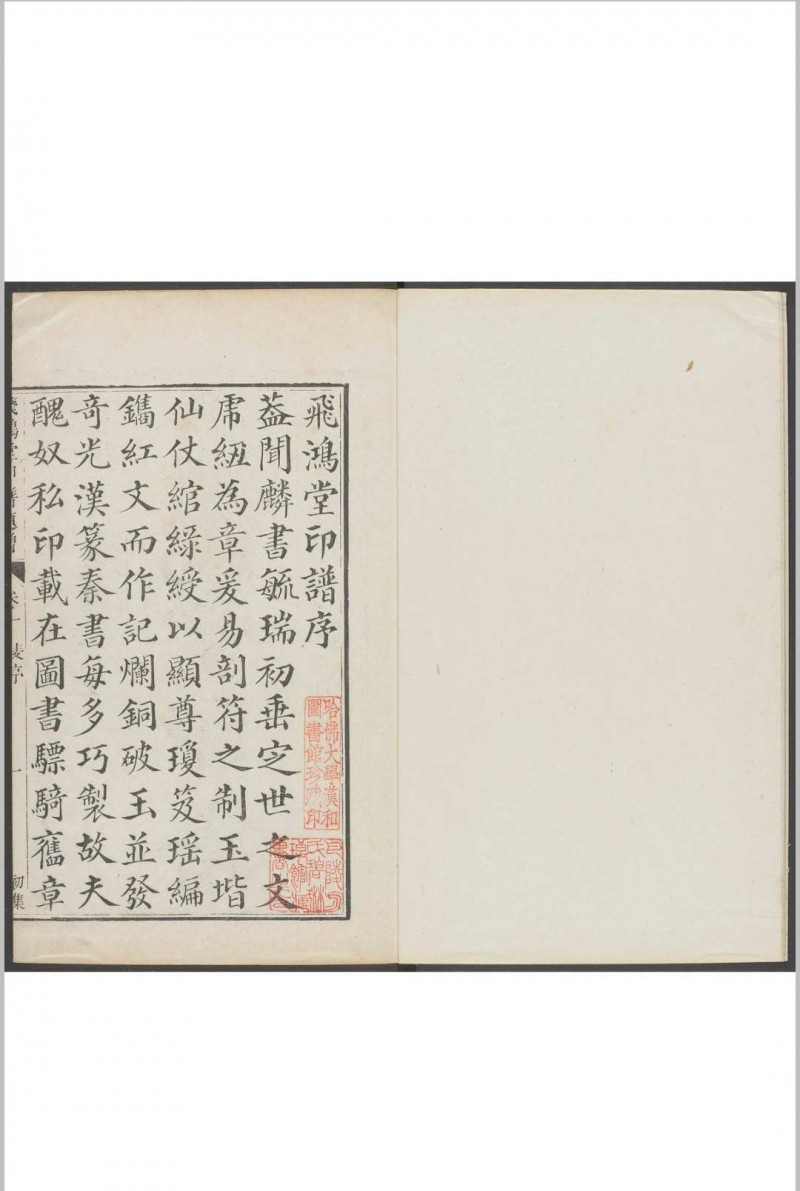 飛鴻堂印譜序
葢聞麟書毓瑞初垂定世之文
虎紐為章爰易剖符之制玉堦
仙仗綰綠綬以顯尊瓊笈瑶編
鐫紅文而作記爛銅破玉並發
奇光漢篆秦書每多巧製故夫
醜奴私印載在圖書驃騎舊章
卷一 裘序 一 初集
哈佛大學漢和
圖書館珍藏印